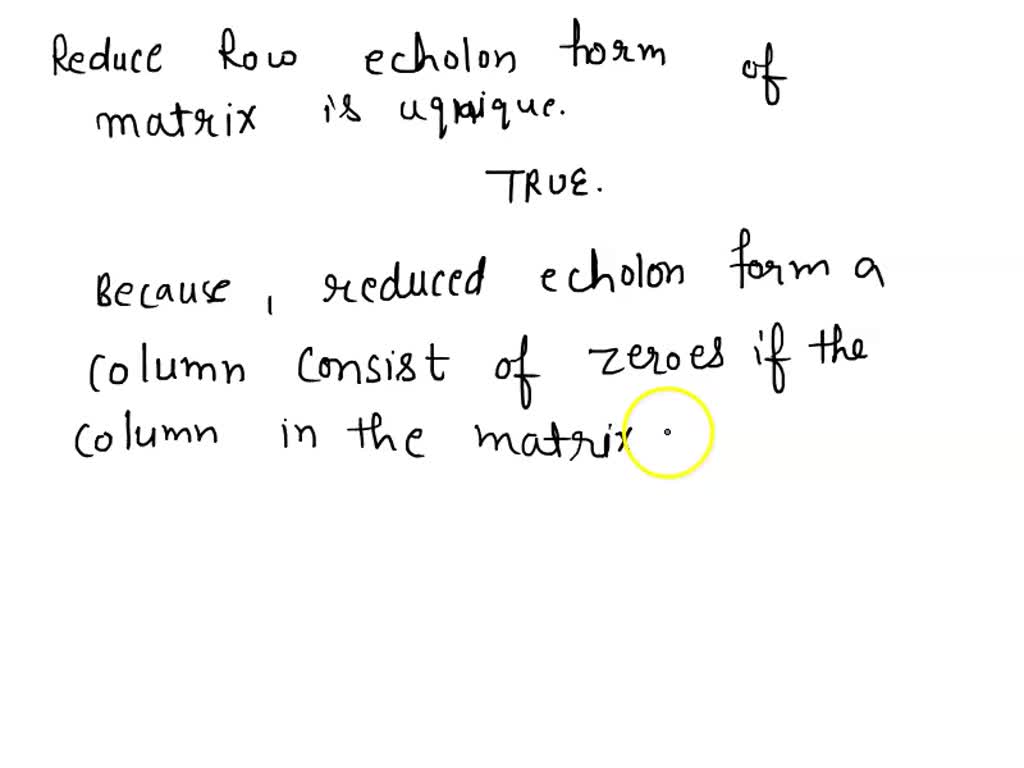 Reduce Row echolon form of
matrix is uqnique.
TRUE.
Because, reduced echolon form a
column consist of zeroes if the
column in the matrix